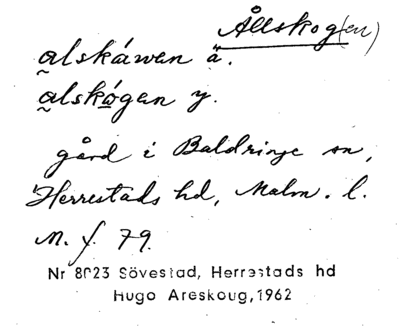 Ållskog(en)
alskáwen ä.
alskógen y.
gård i Baldringe sn,
Herrestads hd, Malm. l.
M. f. 79.
Nr 8023 Sövestad, Herrestads hd
Hugo Areskoug, 1962